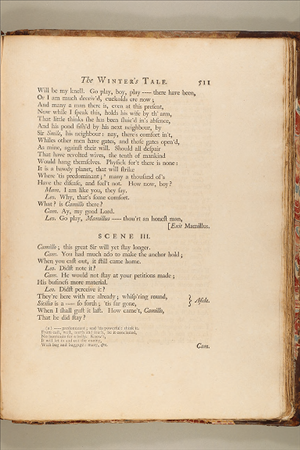 The WINTER's TALE. 511
Will be my knell. Go play, boy, play — there have been,
Or I am much deceiv'd, cuckolds ere now;
And many a man there is, even at this present,
Now while I speak this, holds his wife by th' arm,
That little thinks she has been sluic'd in's absence,
And his pond fish'd by his next neighbour, by
Sir Smile, his neighbour: nay, there's comfort in't,
Whiles other men have gates, and those gates open'd,
As mine, against their will. Should all despair
That have revolted wives, the tenth of mankind
Would hang themselves. Physick for't there is none:
It is a bawdy planet, that will strike
Where 'tis predominant; many a thousand of's
Have the disease, and feel't not. How now, boy?
Mam. I am like you, they say.
Leo. Why, that's some comfort.
What? is Camillo there?
Cam. Ay, my good Lord.
Leo. Go play, Mamillius — thou'rt an honest man,
[Exit Mamillius.
SCENE III.
Camillo; this great Sir will yet stay longer.
Cam. You had much ado to make the anchor hold;
When you cast out, it still came home.
Leo. Didst note it?
Cam. He would not stay at your petitions made;
His business more material.
Leo. Didst perceive it?
They're here with me already; whisp'ring round,
Sicilia is a — so forth; 'tis far gone, } Aside.
When I shall gust it last. How came't, Camillo,
That he did stay?
Cam.